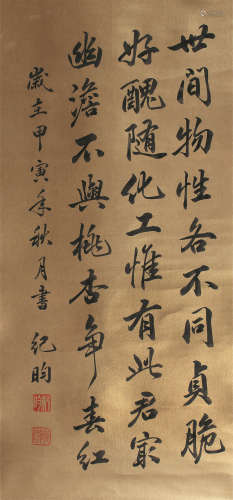 世間物性各不同貞脆
好醜随化工惟有此君寂
幽澹不與桃杏争春红
歲在甲寅年秋月書 纪昀